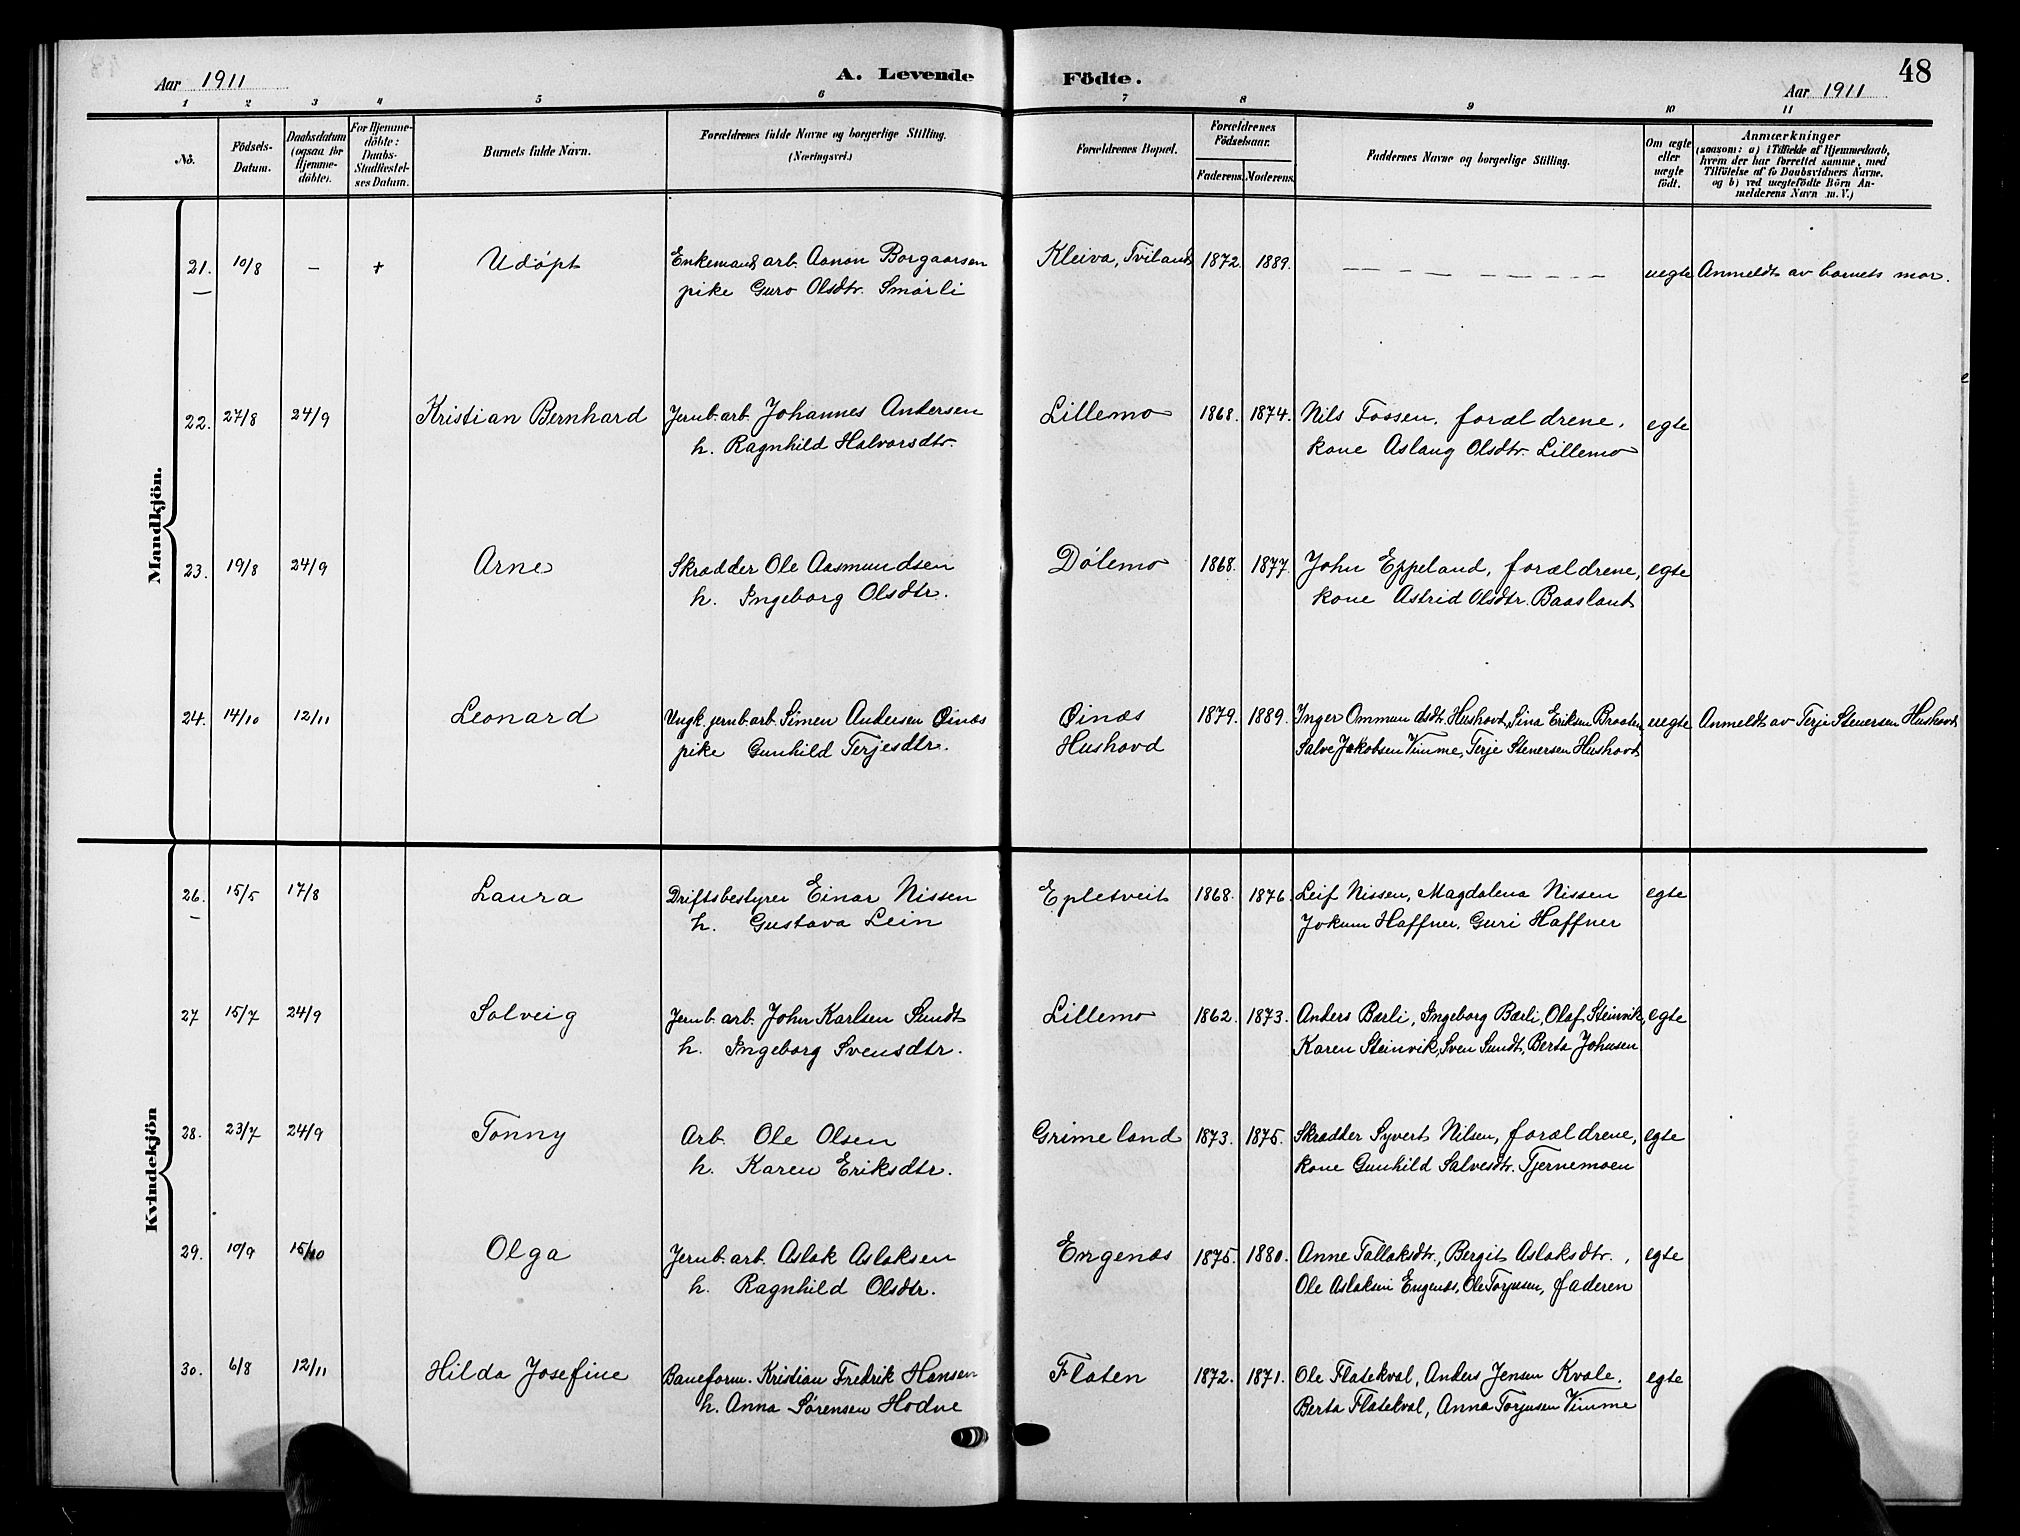 Aar 1911
A. Levende Födte.
48
Aar 1911
1 2 3 4 5 6 7 8 9 10 11
No.
Födsels-Datum.
Daabsdatum (ogsaa for Hjemme-döbte).
For Hjemme-döbte: Daabs-Stadfæstel-ses Datum.
Barnets fulde Navn.
Forældrenes fulde Navne og borgerlige Stilling.
(Næringsvei.)
Forældrenes Bopæl.
Forældrenes Födselsaar.
Faderens. Moderens.
Faddernes Navne og borgerlige Stilling.
Om ægte eller uægte født.
Anmærkninger
(saasom: a) i Tilfælde af Hjemmedaab,
hvem der har forrettet samme, med
Tilföielse af to Daabsvidners Navne.
og b) ved uægtefödte Börn An-
melderens Navn m. V.)
Mandkjön.
21. 10/8 – + Udöpt Enkemand arb. Aanon Borgaarsen Kleiva, Tviland 1872. 1889. — — — — — — — uegte Anmeldt av barnets mor.
pike Guro Olsdtr. Smørli
22. 27/8 24/9 Kristian Bernhard Jernb. arb. Johannes Andersen Lillemo 1868. 1874. Nils Fossen, forældrene, egte
h. Ragnhild Halvorsdtr. kone Aslaug Olsdtr. Lillemo
23. 19/8 24/9 Arne Skrædder Ole Aasmundsen Dølemo 1868. 1877. John Eppeland, forældrene, egte
h. Ingeborg Olsdtr. kone Astrid Olsdtr. Baasland
24. 14/10 12/11 Leonard Ungk. jernb. arb. Simen Andersen Øinæs Øinæs 1879. 1889. Inger Ommundsdtr. Hushovd, Sina Eriksen Braaten, uegte Anmeldt av Terje Stenersen Hushovd
pike Gunhild Terjesdtr. Hushovd Salve Jakobsen Vimme, Terje Stenersen Hushovd
Kvindekjön
26. 15/5 17/8 Laura Driftsbestyrer Einar Nissen Epletveit 1868. 1876. Leif Nissen, Magdalena Nissen egte
h. Gustava Lein Jokum Haffner, Guri Haffner
27 15/7 24/9 Solveig Jernb. arb. John Karlsen Sundt Lillemo 1862. 1873. Anders Bærli, Ingeborg Bærli, Olaf Steinvik, egte
h. Ingeborg Svensdtr. Karen Steinvik, Sven Sundt, Berta Johnsen
28. 23/7 24/9 Tonny Arb. Ole Olsen Grimeland 1873. 1875. Skrædder Syvert Nilsen, forældrene, egte
h. Karen Eriksdtr. kone Gunhild Salvesdtr. Tjernemoen
29. 10/9 15/10 Olga Jernb. arb. Aslak Aslaksen Engenæs 1875. 1880. Anne Tallaksdtr., Bergit Aslaksdtr., egte
h. Ragnhild Olsdtr. Ole Aslaksen Engenæs, Ole Torjusen, faderen
30. 6/8 12/11 Hilda Josefine Baneform. Kristian Fredrik Hansen Flaten 1872. 1871. Ole Flatekval, Anders Jensen Kvale, egte
h. Anna Sørensen Hodne Berta Flatekval, Anna Torjusen Vimme